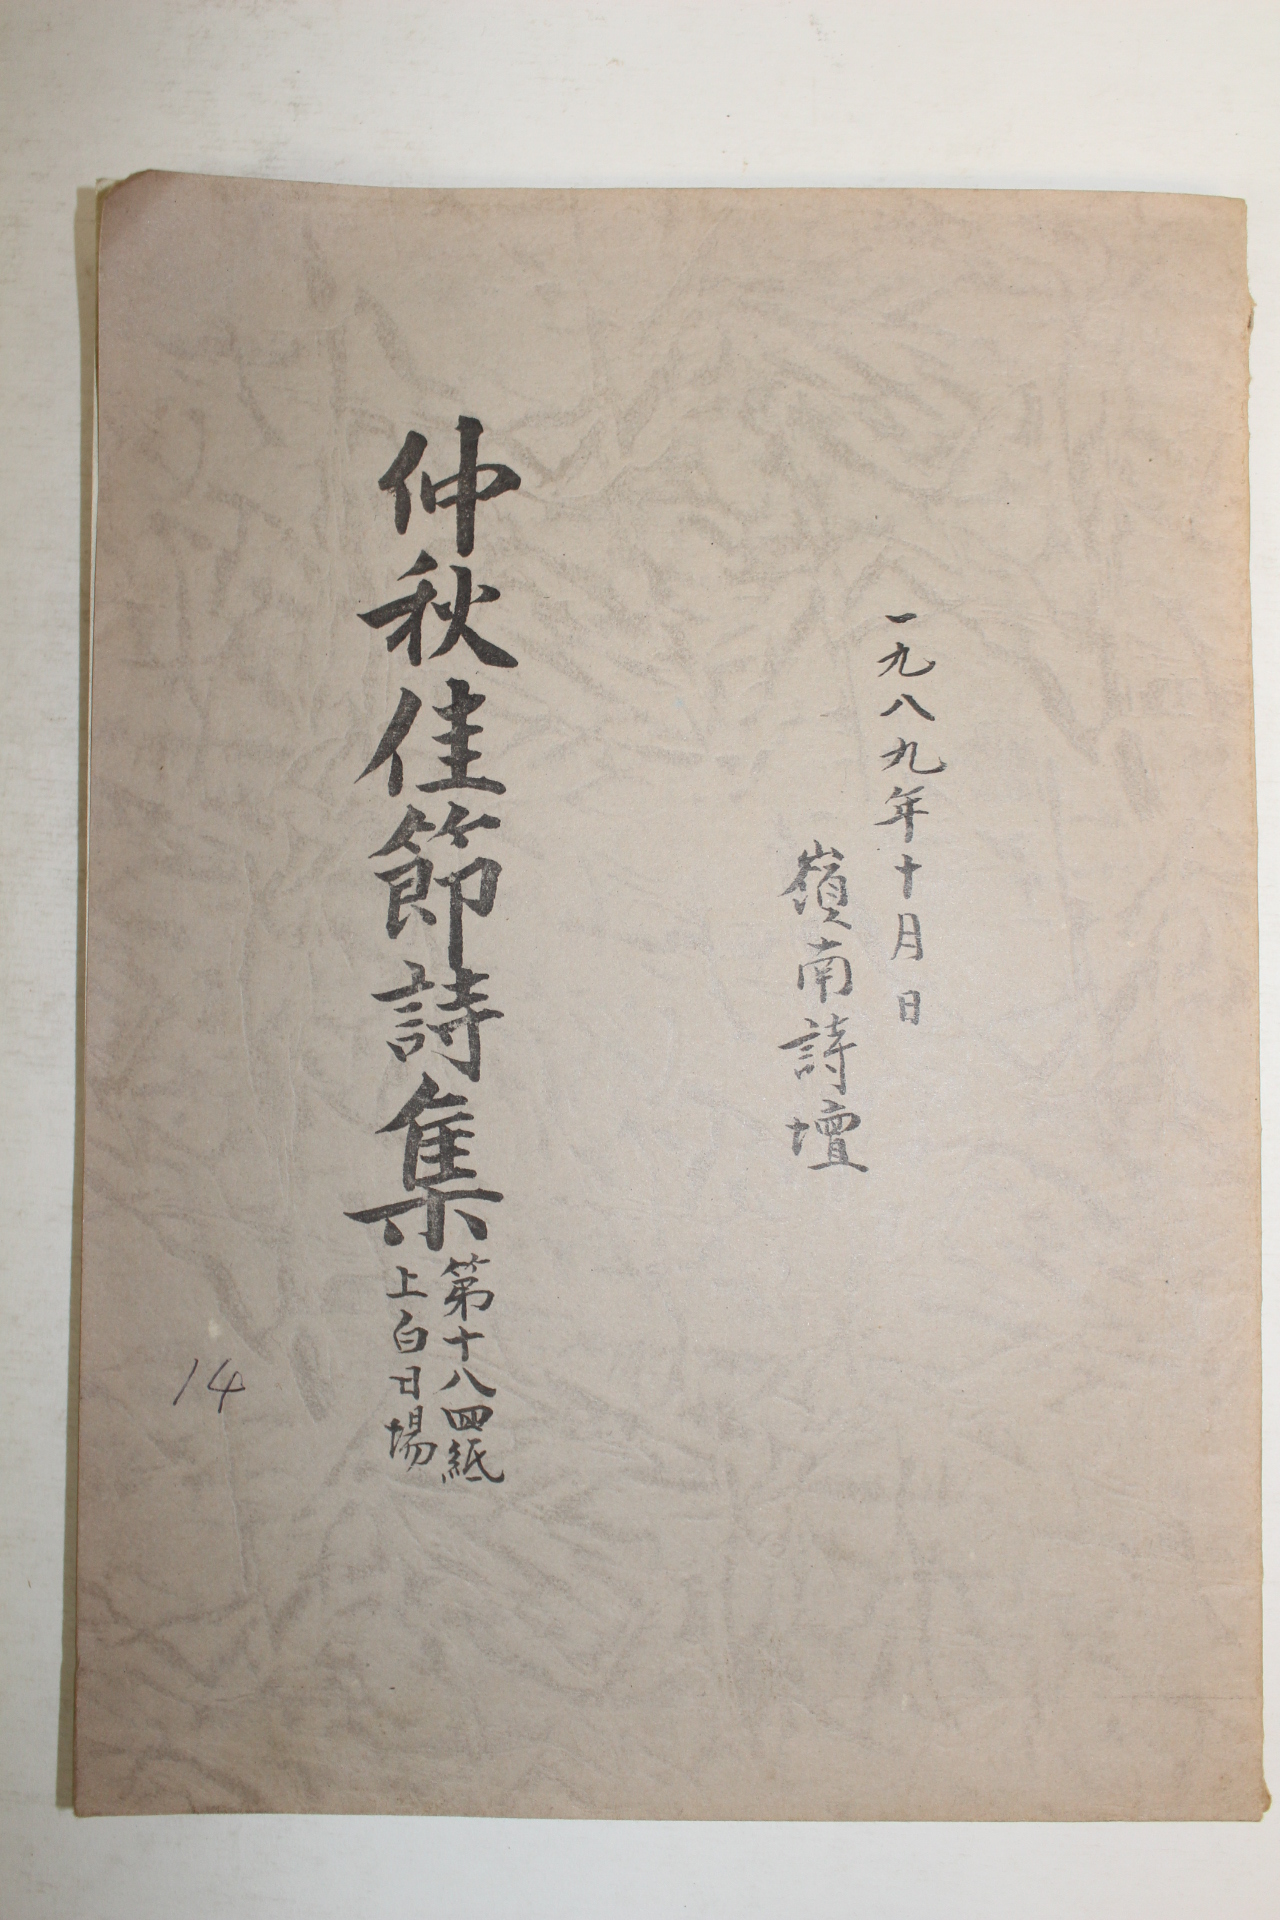 一九八九年十月 日
嶺南詩壇
仲秋佳節詩集
第十八四紙
上白日場
14